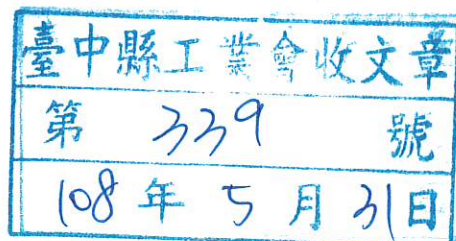 臺中縣工業會收文章
第 339 號
108 年 5 月 31 日